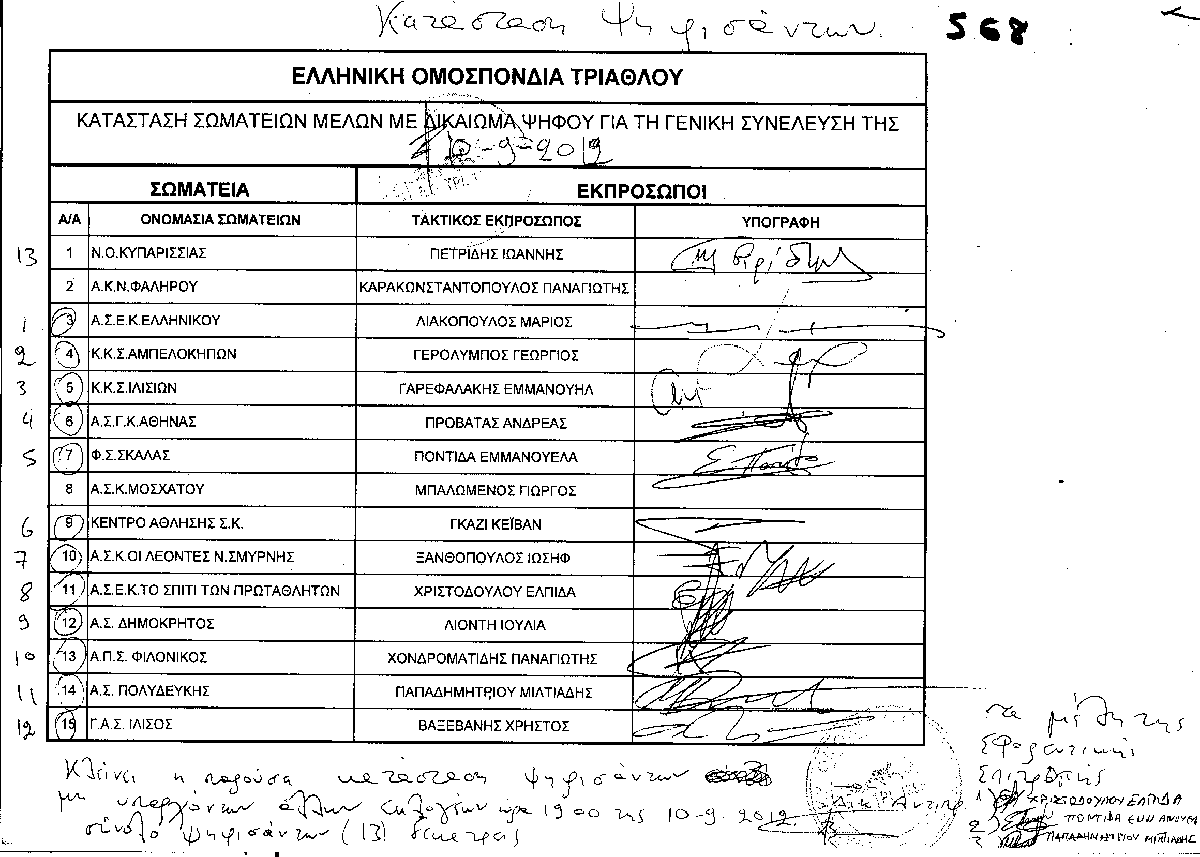 Κατάσταση Ψηφισάντων 568
ΕΛΛΗΝΙΚΗ ΟΜΟΣΠΟΝΔΙΑ ΤΡΙΑΘΛΟΥ
ΚΑΤΑΣΤΑΣΗ ΣΩΜΑΤΕΙΩΝ ΜΕΛΩΝ ΜΕ ΔΙΚΑΙΩΜΑ ΨΗΦΟΥ ΓΙΑ ΤΗ ΓΕΝΙΚΗ ΣΥΝΕΛΕΥΣΗ ΤΗΣ
10-9-2012
ΣΩΜΑΤΕΙΑ ΕΚΠΡΟΣΩΠΟΙ
Α/Α ΟΝΟΜΑΣΙΑ ΣΩΜΑΤΕΙΩΝ ΤΑΚΤΙΚΟΣ ΕΚΠΡΟΣΩΠΟΣ ΥΠΟΓΡΑΦΗ
13 1 Ν.Ο.ΚΥΠΑΡΙΣΣΙΑΣ ΠΕΤΡΙΔΗΣ ΙΩΑΝΝΗΣ
2 Α.Κ.Ν.ΦΑΛΗΡΟΥ ΚΑΡΑΚΩΝΣΤΑΝΤΟΠΟΥΛΟΣ ΠΑΝΑΓΙΩΤΗΣ
1 3 Α.Σ.Ε.Κ.ΕΛΛΗΝΙΚΟΥ ΛΙΑΚΟΠΟΥΛΟΣ ΜΑΡΙΟΣ
2 4 Κ.Κ.Σ.ΑΜΠΕΛΟΚΗΠΩΝ ΓΕΡΟΛΥΜΠΟΣ ΓΕΩΡΓΙΟΣ
3 5 Κ.Κ.Σ.ΙΛΙΣΙΩΝ ΓΑΡΕΦΑΛΑΚΗΣ ΕΜΜΑΝΟΥΗΛ
4 6 Α.Σ.Γ.Κ.ΑΘΗΝΑΣ ΠΡΟΒΑΤΑΣ ΑΝΔΡΕΑΣ
5 7 Φ.Σ.ΣΚΑΛΑΣ ΠΟΝΤΙΔΑ ΕΜΜΑΝΟΥΕΛΑ
8 Α.Σ.Κ.ΜΟΣΧΑΤΟΥ ΜΠΑΛΩΜΕΝΟΣ ΓΙΩΡΓΟΣ
6 9 ΚΕΝΤΡΟ ΑΘΛΗΣΗΣ Σ.Κ. ΓΚΑΖΙ ΚΕΪΒΑΝ
7 10 Α.Σ.Κ.ΟΙ ΛΕΟΝΤΕΣ Ν.ΣΜΥΡΝΗΣ ΞΑΝΘΟΠΟΥΛΟΣ ΙΩΣΗΦ
8 11 Α.Σ.Ε.Κ.ΤΟ ΣΠΙΤΙ ΤΩΝ ΠΡΩΤΑΘΛΗΤΩΝ ΧΡΙΣΤΟΔΟΥΛΟΥ ΕΛΠΙΔΑ
9 12 Α.Σ. ΔΗΜΟΚΡΗΤΟΣ ΛΙΟΝΤΗ ΙΟΥΛΙΑ
10 13 Α.Π.Σ. ΦΙΛΟΝΙΚΟΣ ΧΟΝΔΡΟΜΑΤΙΔΗΣ ΠΑΝΑΓΙΩΤΗΣ
11 14 Α.Σ. ΠΟΛΥΔΕΥΚΗΣ ΠΑΠΑΔΗΜΗΤΡΙΟΥ ΜΙΛΤΙΑΔΗΣ
12 15 Γ.Α.Σ. ΙΛΙΣΟΣ ΒΑΞΕΒΑΝΗΣ ΧΡΗΣΤΟΣ
Κλείνει η παρούσα κατάσταση ψηφισάντων
μη υπαρχόντων άλλων εκλογέων ώρα 19 00 της 10-9-2012
σύνολο ψηφισάντων (13) δεκατρείς
τα μέλη της
Εφορευτικής
Επιτροπής
1) ΧΡΙΣΤΟΔΟΥΛΟΥ ΕΛΠΙΔΑ
2) ΠΟΝΤΙΔΑ ΕΜΜΑΝΟΥΕΛΑ
3 ΠΑΠΑΔΗΜΗΤΡΙΟΥ ΜΙΛΤΙΑΔΗΣ